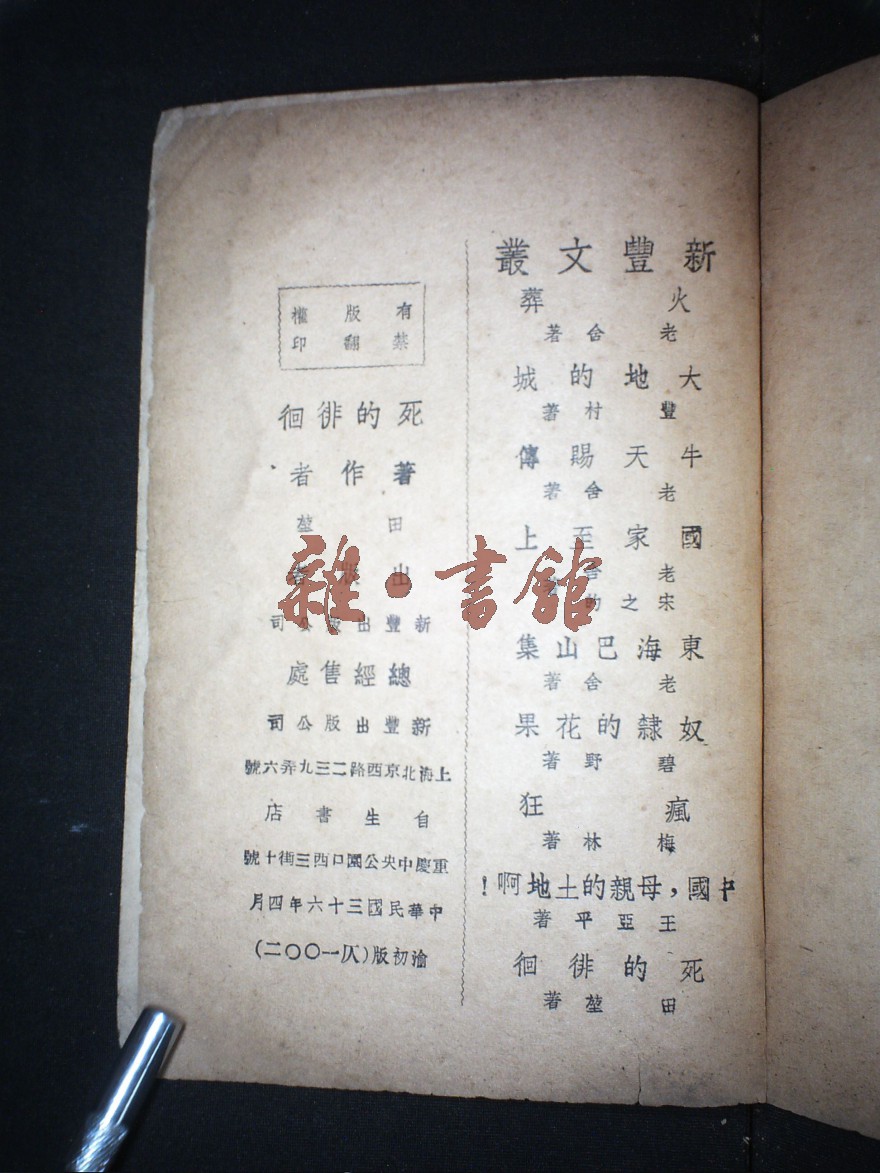 新豐文叢
火葬
老舍著
大地的城
豐村著
牛天賜傳
老舍著
國家至上
老舍
宋之的著
東海巴山集
老舍著
奴隸的花果
碧野著
瘋狂
梅林著
中國，母親的土地啊！
王亞平著
死的徘徊
田堃著
有版權
禁翻印
死的徘徊
著作者
田堃
出版者
新豐出版公司
總經售處
新豐出版公司
上海北京西路二三九弄六號
自生書店
重慶中央公園口西三街十號
中華民國三十六年四月
渝初版（一〇〇二）
雜·書館